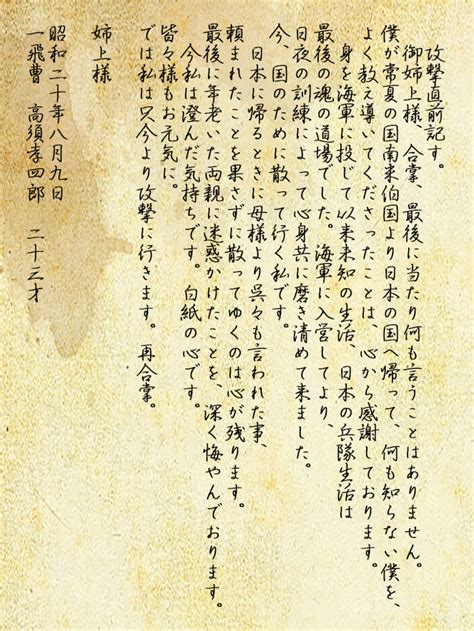 攻撃直前記す。
御姉上様、合掌、最後に当たり何も言うことはありません。
僕が常夏の国南来伯国より日本の国へ帰って、何も知らない僕を、
よく教え導いてくださったことは、心から感謝しております。
身を海軍に投じて以来未知の生活、日本の兵隊生活は
最後の魂の道場でした。海軍に入営してより、
日夜の訓練によって心身共に磨き清めて来ました。
今、国のために散って行く私です。
日本に帰るときに母様より呉々も言われた事、
頼まれたことを果さずに散ってゆくのは心が残ります。
最後に年老いた両親に迷惑かけたことを、深く悔やんでおります。
今私は澄んだ気持ちです。白紙の心です。
皆々様もお元気に。
では私は只今より攻撃に行きます。再合掌。
姉上様
昭和二十年八月九日
一飛曹 高須孝四郎 二十三才